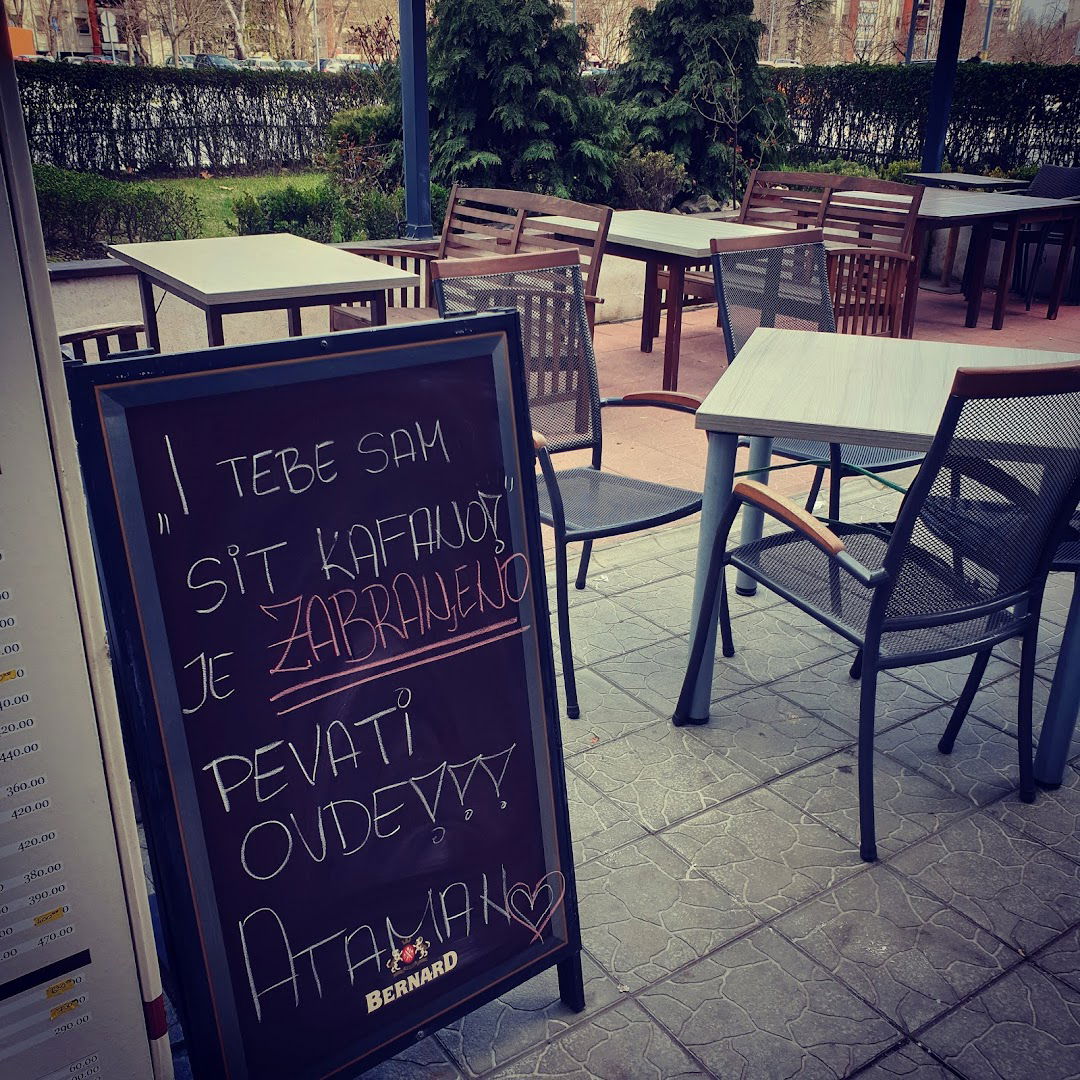 „I TEBE SAM
SIT KAFANO!"
JE ZABRANJENO
PEVATI
OVDE!!!
ATAMAN
BERNARD
440.00
360.00
420.00
420.00
380.00
390.00
470.00
290.00
60.00